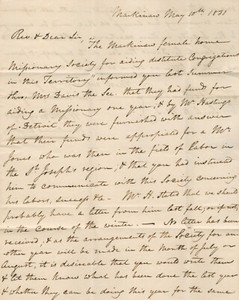 Mackinac May 10th 1831
Rev. & Dear Sir,
The Mackinac female home
Missionary Society for aiding destitute Congregations
in this Territory informed you last Summer
thro. Mrs Davis the Sec that they had funds for
aiding a Missionary one year, & by Mr Hastings
of Detroit they were furnished with answer
that their funds were appropriated for a Mr
Jones who was then in the field of labor in
the St Joseph's region, & that you had instructed
him to communicate with this Society concerning
his labors, &c. Mr H. stated that we should
probably have a letter from him last fall, or part
in the course of the winter — No letter has been
received, & as the arrangements of the Society for an
other year will be made in the Month of July or
August, it is desireable that you would write them
& let them know what has been done the last year
& whether they can be doing this year for the same